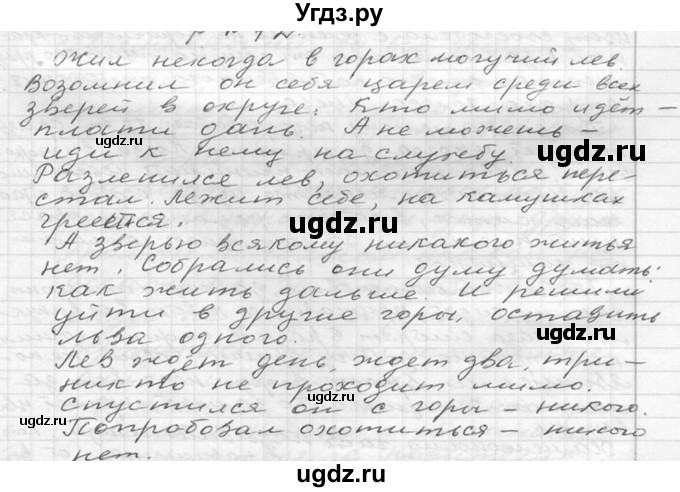 Угдз.ру
Жил некогда в горах могучий лев.
Возомнил он себя царем среди всех
зверей в округе: Кто мимо идёт -
плати дань. А не можешь -
иди к нему на службу.
Разленился лев, охотиться пере-
стал. Лежит себе, на камушках
греется.
А зверью всякому никакого житья
нет. Собрались они думу думать:
как жить дальше. И решили
уйти в другие горы, оставить
льва одного.
Лев ждет день, ждет два, три -
никто не проходит мимо.
Спустился он с горы - никого.
Попробовал охотиться - никого
нет.
ugdz.ru
ugdz.ru
ugdz.ru
ugdz.ru
ugdz.ru
ugdz.ru
ugdz.ru
ugdz.ru
ugdz.ru
ugdz.ru